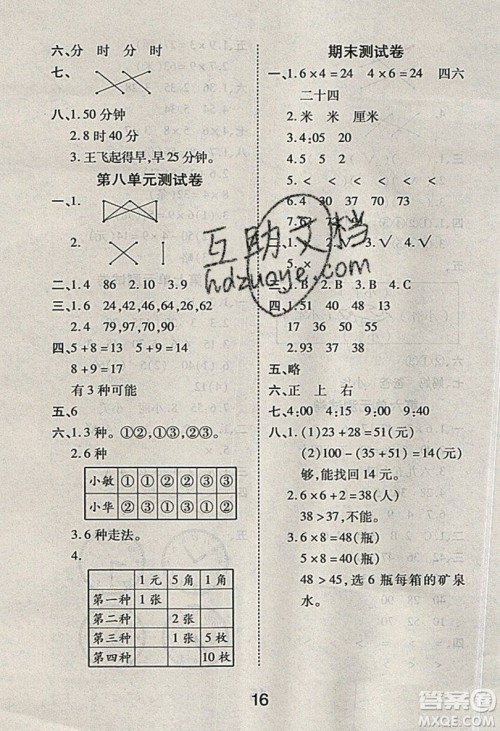 六、分 时 分 时
七、
八、1.50 分钟
2.8 时 40 分
3.王飞起得早,早 25 分钟。
第八单元测试卷
一、1.
2.
二、1.4 86 2.10 3.4
三、1.6 24,42,46,64,26,62
2.4 79,97,70,90
四、5+8=13 5+9=14
8+9=17
有 3 种可能
五、6
六、1.3 种。①②,①③,②③。
2.6 种
小敏 ① ① ② ② ③ ③
小华
3.6 种走法。
4.
1 元 5 角 1 角
第一种 1 张
第二种 2 张
第三种 1 张 5 枚
第四种 10 枚
期末测试卷
一、1.6×4=24 4×6=24 四六
二十四
2.米 米 厘米
3.4:05 4.4
5.< < < < < <
6.4 30 70 73
7.6
二、1. 2. 3. 4.√
5.×
三、1. 2.B 3.B 4.C
四、1.51 40 48 13
17 38 50 55
2.93 37
五、略
六、正 上 右
七、4:00 8:40 9:00 9:40
八、1.(1)23+28=51(元)
(2)100-51=49(元)
够,能找回 14 元。
2.6×6+2=38(人)
38>37,不能。
3.6×8=48(瓶)
5×8=40(瓶)
48>45,选 6 瓶每箱的矿泉
水。
16
互助文档
hdzuoye.com
答案圈
MXQE.COM